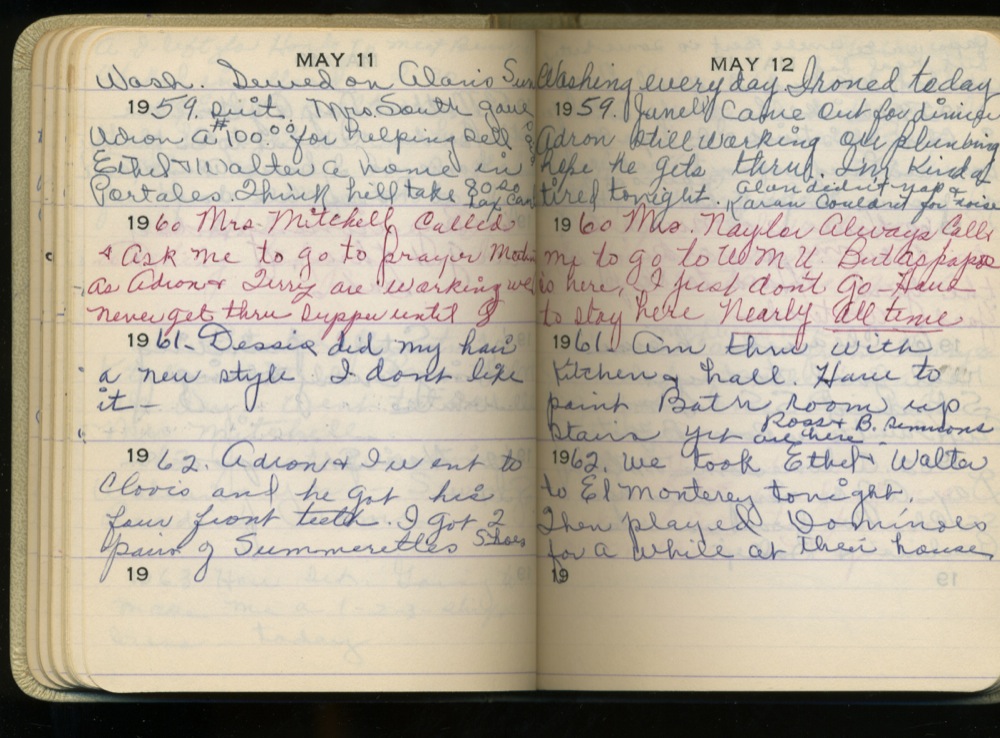 MAY 11
Wash. Sewed on Alan's Sun
1959. suit. Mrs. South gave
Adron a $100.00 for helping sell
Ethel & Walter a home in
Portales. I think he'll take 80.00
tax can
1960 Mrs. Mitchell called
& Ask me to go to prayer
as Adron & Terry are working we
never get thru supper until 8
1961- Dessie did my hair
a new style I dont like
it -
1962. Adron & I went to
Clovis and he got his
four front teeth. I got 2
pairs of Summerettes Shoes
19
MAY 12
Washing everyday Ironed today
1959. Junell Came out for dinner
Adron still working on plumbing
hope he gets thru. I'm Kinda
tired tonight. Alan didn't nap &
Karan Couldn't for noise
1960 Mrs. Naylor Always Calls
me to go to W M U. But as papa
is here, I just dont go - Have
to stay here Nearly all time
1961. Am thru with
Kitchen & hall. Have to
paint Bath room up
stairs yet Ross & B. Simmons
are here
1962. We took Ethel & Walter
to El Monterey tonight.
Then played Dominoes
for a while at their house
19